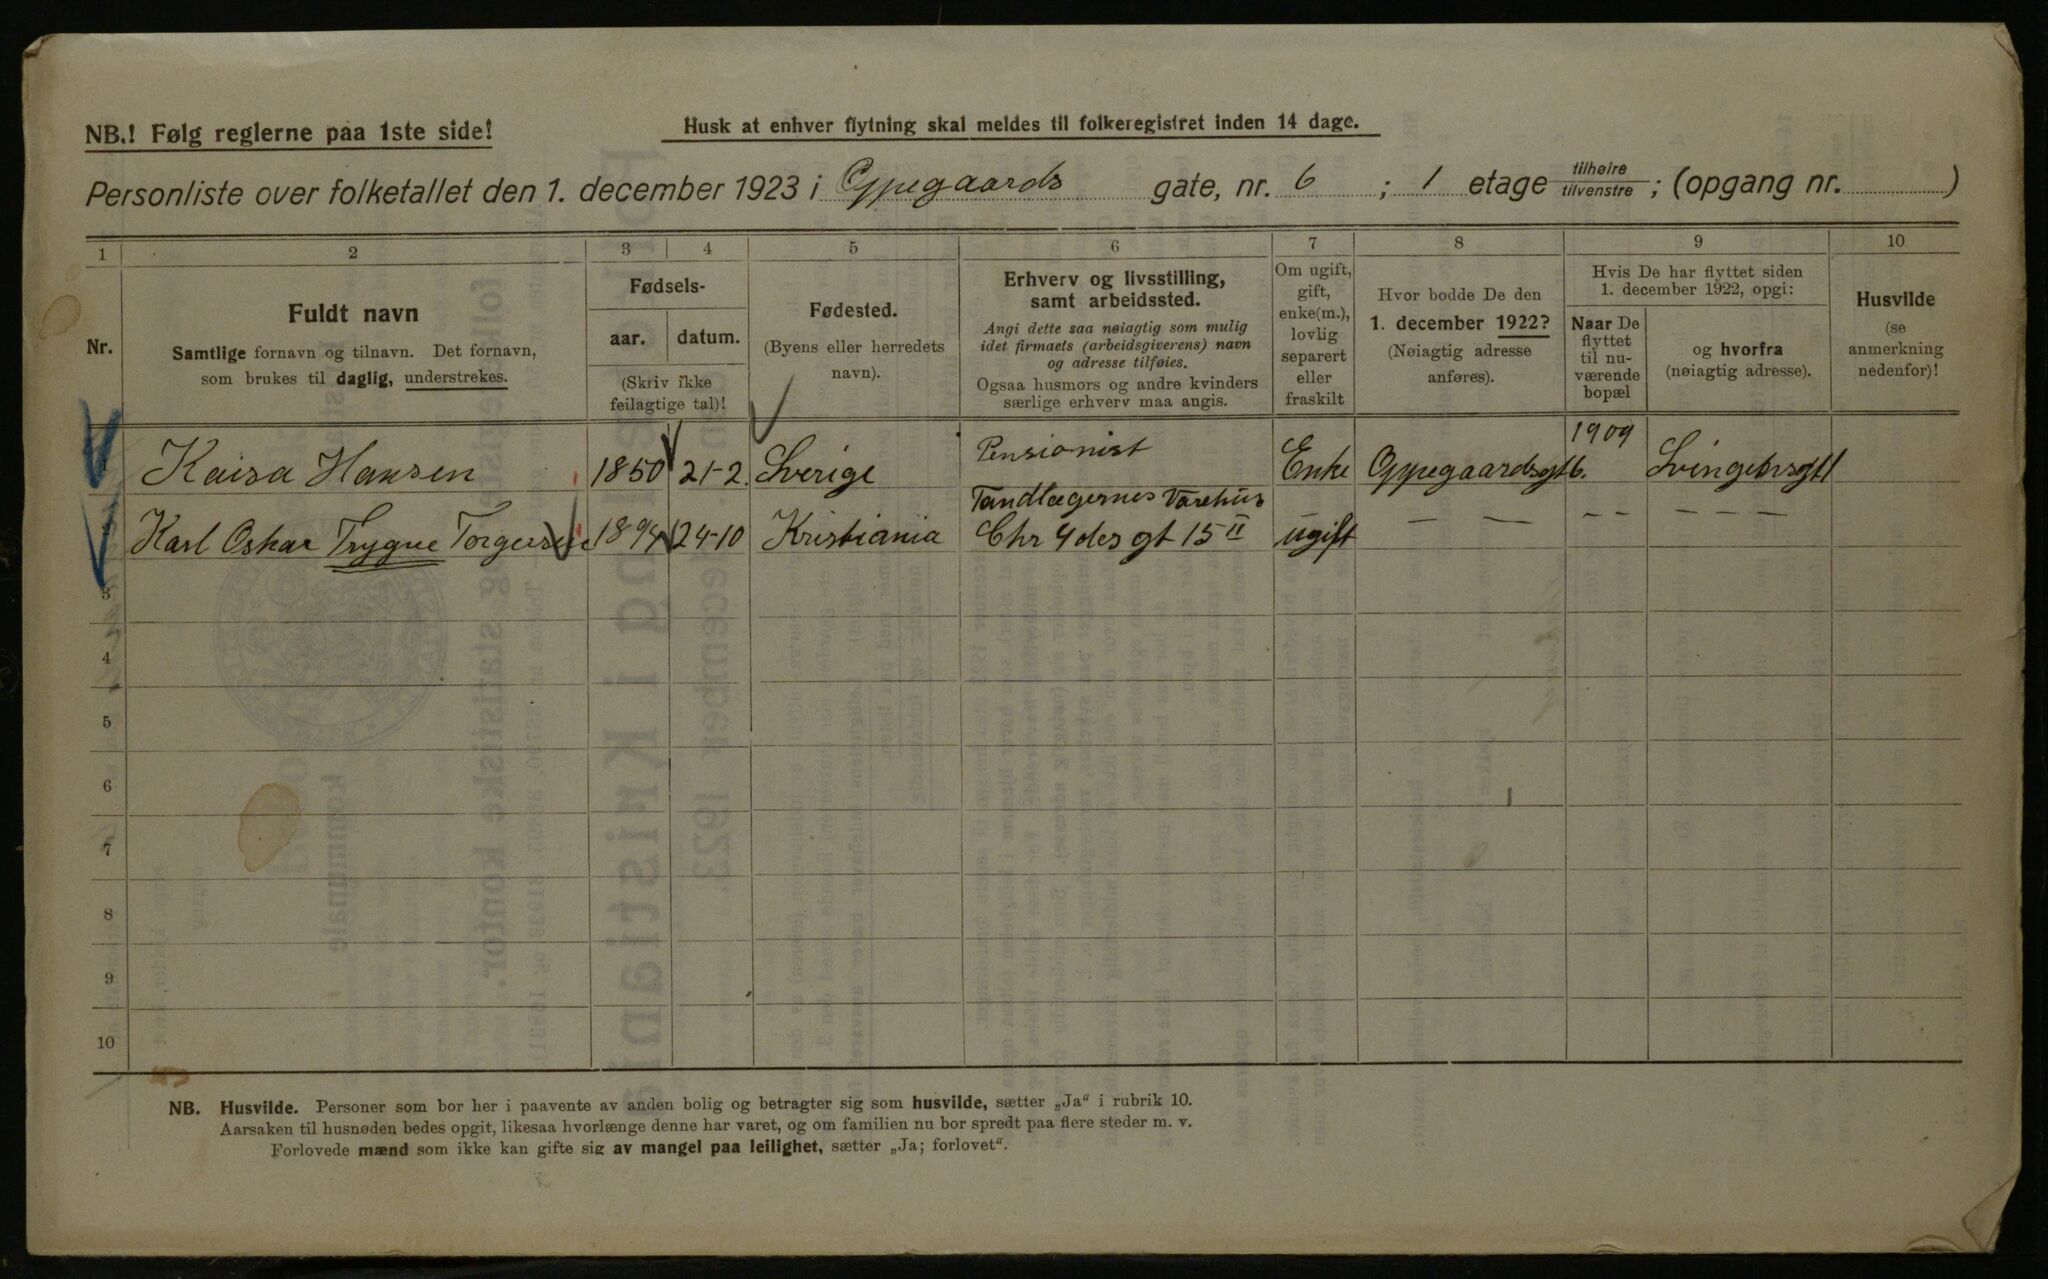 NB.! Følg reglerne paa 1ste side!
Husk at enhver flytning skal meldes til folkeregistret inden 14 dage.
Personliste over folketallet den 1. december 1923 i Oppegaards gate, nr. 6 ; 1 etage tilhøire/tilvenstre ; (opgang nr. )
1 2 3 4 5 6 7 8 9 10
Nr.
Fuldt navn
Samtlige fornavn og tilnavn. Det fornavn,
som brukes til daglig, understrekes.
Fødsels-
aar. datum.
(Skriv ikke
feilagtige tal)!
Fødested.
(Byens eller herredets
navn).
Erhverv og livsstilling,
samt arbeidssted.
Angi dette saa nøiagtig som mulig
idet firmaets (arbeidsgiverens) navn
og adresse tilføies.
Ogsaa husmors og andre kvinders
særlige erhverv maa angis.
Om ugift,
gift,
enke(m.),
lovlig
separert
eller
fraskilt
Hvor bodde De den
1. december 1922?
(Nøiagtig adresse
anføres).
Hvis De har flyttet siden
1. december 1922, opgi:
Naar De
flyttet
til nu-
værende
bopæl
og hvorfra
(nøiagtig adresse).
Husvilde
(se
anmerkning
nedenfor)!
Kaisa Hansen 1850 21-2. Sverige Pensionist Enke Oppegaardsgt 6. 1909 Svingebrsgt 1
Tandlægernes Varehus
Karl Oskar Trygve Torgersen 1894 24-10 Kristiania Chr 4des gt 15 II ugift — — – – – – –
3
4
5
6
7
8
9
10
NB. Husvilde. Personer som bor her i paavente av anden bolig og betragter sig som husvilde, sætter „Ja“ i rubrik 10.
Aarsaken til husnøden bedes opgit, likesaa hvorlænge denne har varet, og om familien nu bor spredt paa flere steder m. v.
Forlovede mænd som ikke kan gifte sig av mangel paa leilighet, sætter „Ja; forlovet“.